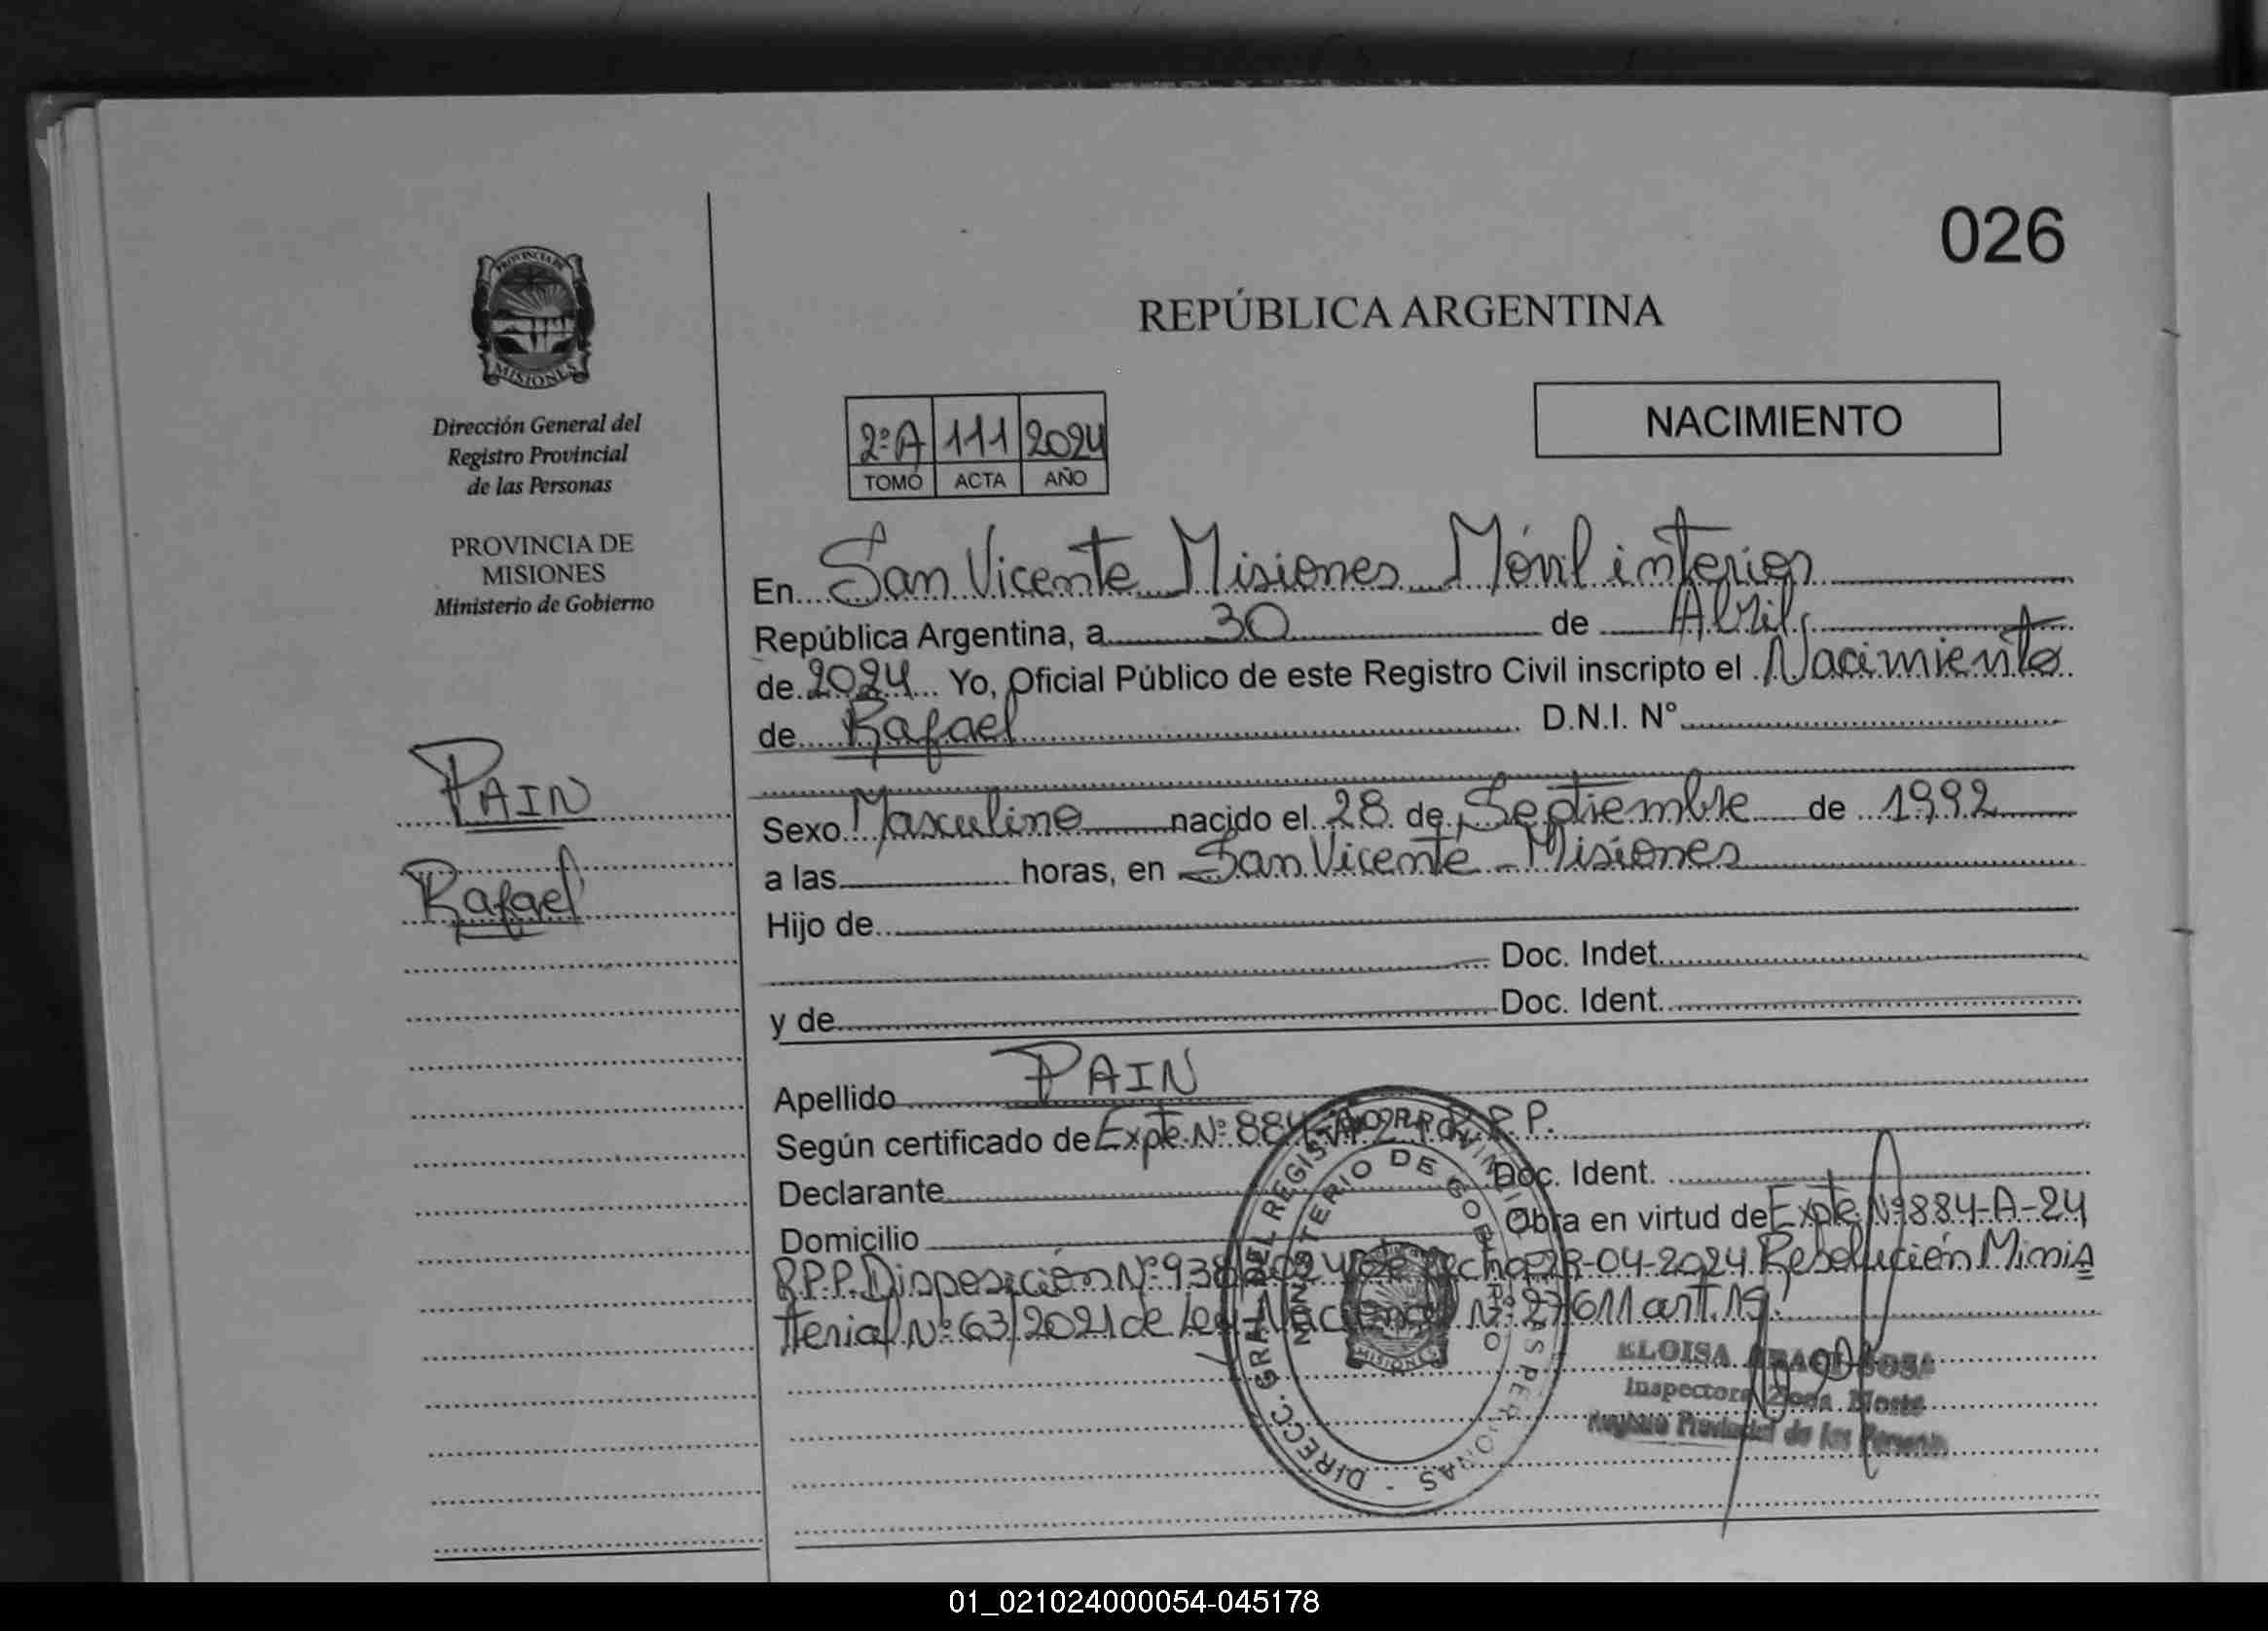 026
REPÚBLICA ARGENTINA
NACIMIENTO
PROVINCIA DE
MISIONES
Dirección General del
Registro Provincial
de las Personas
PROVINCIA DE
MISIONES
Ministerio de Gobierno
PAIN
Rafael
2º A 111 2024
TOMO ACTA AÑO
En San Vicente Misiones Móvil interior
República Argentina, a 30 de Abril
de 2024 Yo, Oficial Público de este Registro Civil inscripto el Nacimiento
de Rafael D.N.I. N°
Sexo Masculino nacido el 28 de Septiembre de 1992
a las horas, en San Vicente - Misiones
Hijo de
Doc. Indet.
y de Doc. Ident.
Apellido PAIN
Según certificado de Expte. Nº 884-A-24 R.P.P.
Declarante Doc. Ident.
Domicilio Obra en virtud de Expte. Nº 884-A-24
R.P.P. Disposición Nº 938/2024 de fecha -04-2024 Resolución Minis
terial Nº 63/2021 de Ley Nacional Nº 27611 art. 19.
DIRECC. GRAL. DEL REGISTRO PROVINCIAL DE LAS PERSONAS
MINISTERIO DE GOBIERNO
MISIONES
ELOISA SOSA
Inspectora Zona Norte
Registro Provincial de las Personas
01_021024000054-045178